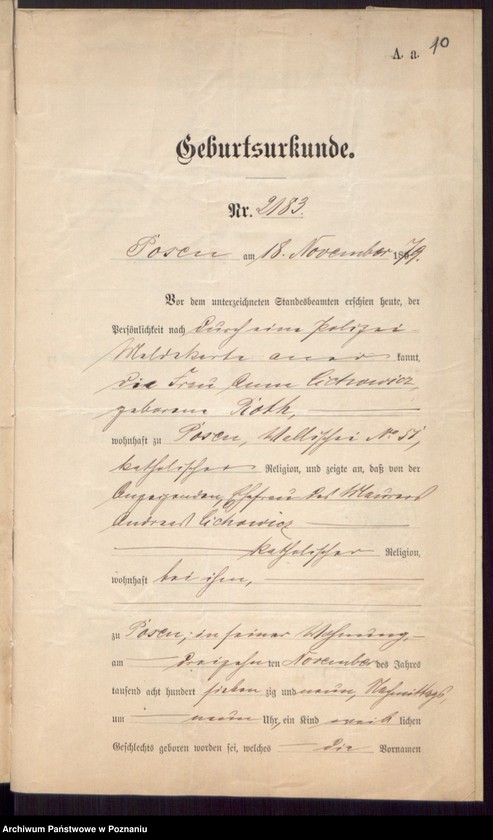 A. a. 10
Geburtsurkunde.
Nr. 2183.
Posen am 18. November 1879.
Vor dem unterzeichneten Standesbeamten erschien heute, der
Persönlichkeit nach durch eine Polizei
Meldekarte aner kannt,
die Frau Anna Cichowicz,
geborene Roth,
wohnhaft zu Posen, Wallischei No 51,
katholischer Religion, und zeigte an, daß von der
Angegenden, Ehefrau des Maurers
Andreas Cichowicz
katholischer Religion,
wohnhaft bei ihm,
zu Posen, in seiner Wohnung,
am dreizehn ten November des Jahres
tausend acht hundert sieben zig und neun, Nachmittags,
um neun Uhr, ein Kind weib lichen
Geschlechts geboren worden sei, welches die Vornamen
Archiwum Państwowe w Poznaniu